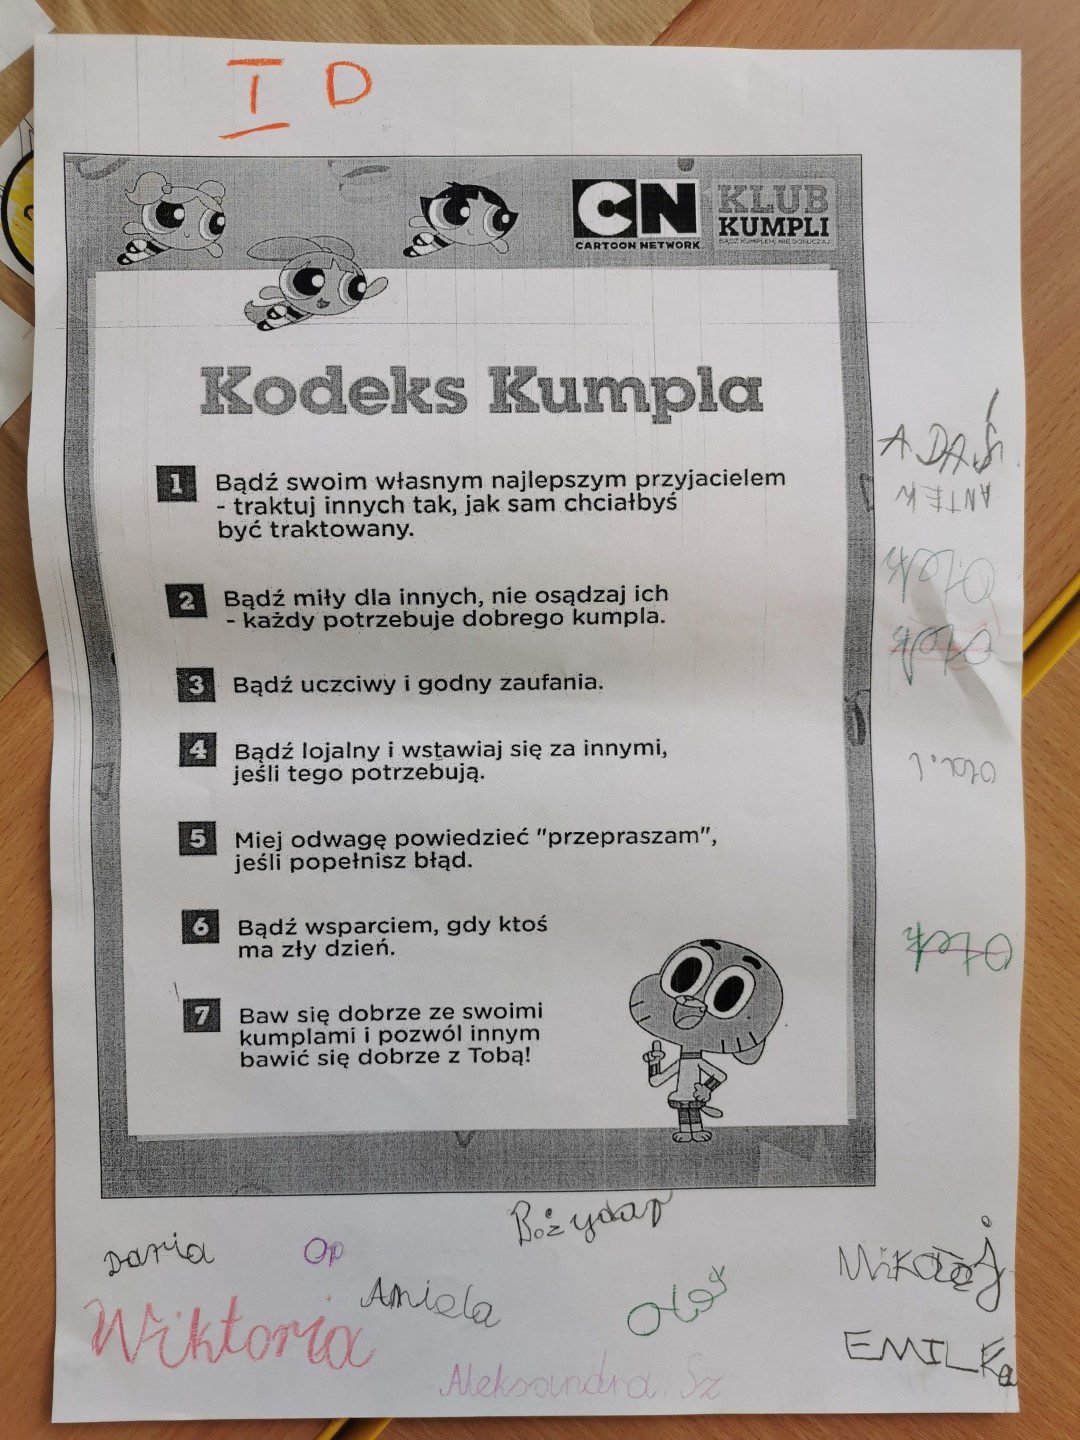 I D
CN
CARTOON NETWORK
KLUB
KUMPLI
BĄDŹ KUMPLEM, NIE DOKUCZAJ
Kodeks Kumpla
1 Bądź swoim własnym najlepszym przyjacielem
- traktuj innych tak, jak sam chciałbyś
być traktowany.
2 Bądź miły dla innych, nie osądzaj ich
- każdy potrzebuje dobrego kumpla.
3 Bądź uczciwy i godny zaufania.
4 Bądź lojalny i wstawiaj się za innymi,
jeśli tego potrzebują.
5 Miej odwagę powiedzieć "przepraszam",
jeśli popełnisz błąd.
6 Bądź wsparciem, gdy ktoś
ma zły dzień.
7 Baw się dobrze ze swoimi
kumplami i pozwól innym
bawić się dobrze z Tobą!
ADAŚ
ANTEK
Olek
Olek
Olek
Bożydar
Daria
Mikołaj
Aniela
Olek
Wiktoria
EMILKa
Aleksandra. Sz